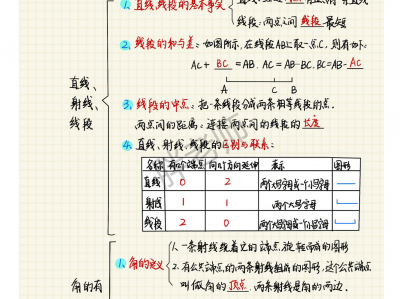 1. 直线、线段的基本事实
线段：两点之间 线段 最短
2. 线段的和与差：如图所示，在线段AB上取一点C，则有如下：
AC + BC = AB. AC = AB - BC. BC = AB - AC
A C B
直线、射线、线段
3. 线段的中点：把一条线段分成两条相等线段的点.
两点间的距离：连接两点间的线段的长度
4. 直线、射线、线段的区别与联系：
名称 有几个端点 向几个方向延伸 表示 图形
直线 0 2 两个大写字母或一个小写字母
射线 1 1 两个大写字母
线段 2 0 两个大写字母或一个小写字母
1. 角的定义
1. 一条射线绕着它的端点旋转而成的图形
2. 有公共端点的两条射线组成的图形，这个公共端点
叫做角的 顶点 ，两条射线是角的两边.
角的有